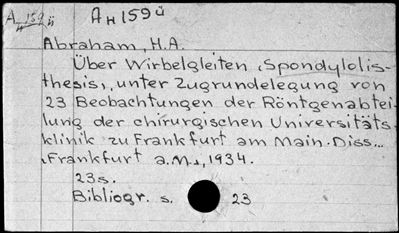 A 159 ü
H
AH159ü
Abraham, H.A.
Über Wirbelgleiten (Spondylolis-
thesis), unter Zugrundelegung von
23 Beobachtungen der Röntgenabtei-
lung der chirurgischen Universitäts-
klinik zu Frankfurt am Main. Diss...
(Frankfurt a.M., 1934.
23s.
Bibliogr. s. 23